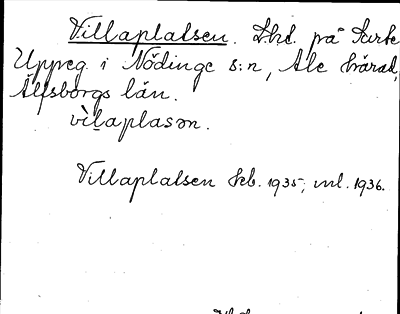 Villaplatsen. Lht. på Surte
Uppeg. i Nödinge s:n, Ale härad,
Älfsborgs län.
vìlaplasən.
Villaplatsen Jkb. 1935; inl. 1936.